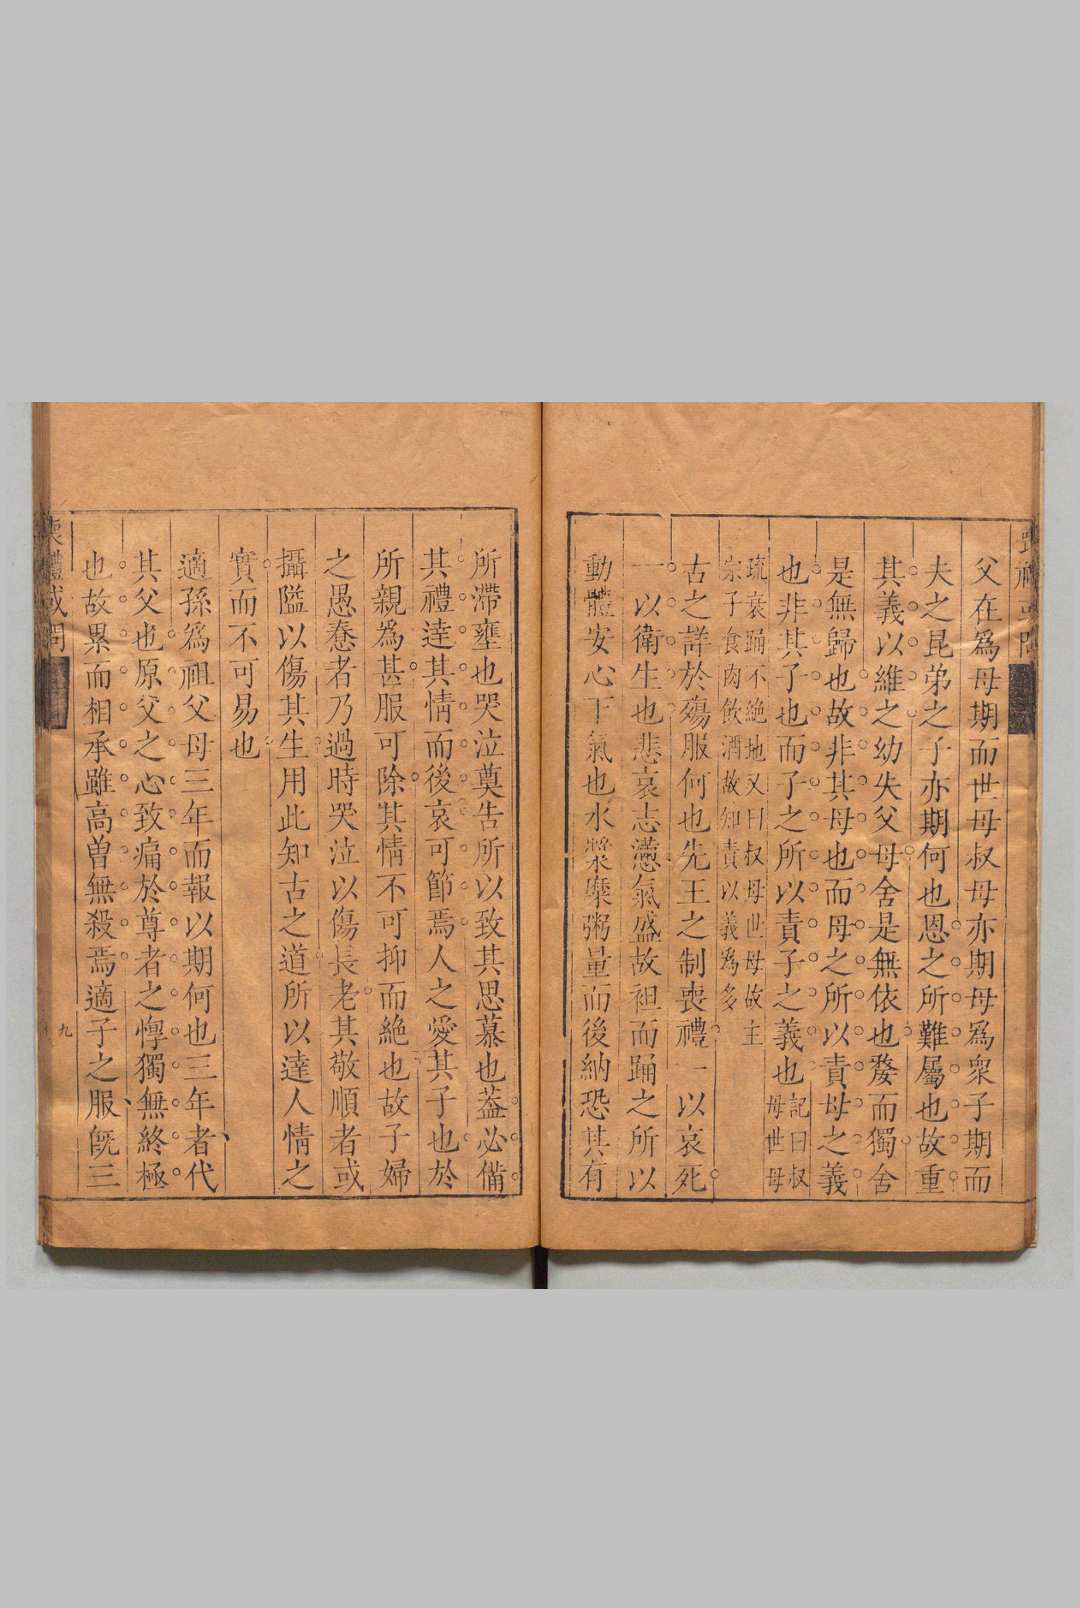 父在爲母期而世母叔母亦期母爲衆子期而
夫之昆弟之子亦期何也恩之所難屬也故重
其義以維之幼失父母舍是無依也嫠而獨舍
是無歸也故非其母也而母之所以責母之義
也非其子也而子之所以責子之義也記曰叔母世母
疏衰踊不絶地又曰叔母世母故主
宗子食肉飲酒故知責以義爲多
古之詳於殤服何也先王之制喪禮一以哀死
一以衛生也悲哀志懣氣盛故袒而踊之所以
動體安心下氣也水漿糜粥量而後納恐其有
所滯壅也哭泣奠告所以致其思慕也葢必備
其禮達其情而後哀可節焉人之愛其子也於
所親爲甚服可除其情不可抑而絶也故子婦
之愚惷者乃過時哭泣以傷長老其敬順者或
攝隘以傷其生用此知古之道所以達人情之
實而不可易也
適孫爲祖父母三年而報以期何也三年者代
其父也原父之心致痛於尊者之惸獨無終極
也故累而相承雖高曽無殺焉適子之服旣三
喪禮或問
九